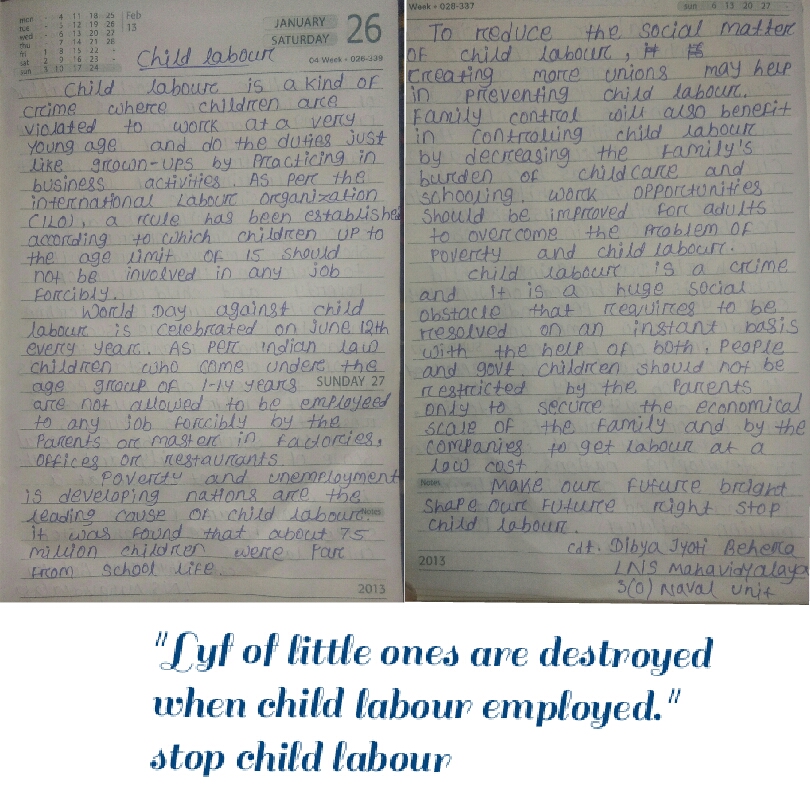 JANUARY 26
SATURDAY
04 Week • 026-339
Feb
13
mon - 4 11 18 25
tue - 5 12 19 26
wed - 6 13 20 27
thu - 7 14 21 28
fri 1 8 15 22 -
sat 2 9 16 23 -
sun 3 10 17 24 -
Child labour
Child labour is a kind of
crime where children are
violated to work at a very
young age and do the duties just
like grown-ups by practicing in
business activities. As per the
international Labour organization
(ILO), a rule has been established
according to which children up to
the age limit of 15 should
not be involved in any job
forcibly.
World Day against child
labour is celebrated on June 12th
every year. As per indian law
children who come under the
age group of 1-14 years
SUNDAY 27
are not allowed to be employeed
to any job forcibly by the
parents or master in factories,
offices or restaurants.
Poverty and unemployment
is developing nations are the
leading cause of child labour.
Notes
it was found that about 75
million children were far
from school life.
2013
Week • 028-337
sun 6 13 20 27
To reduce the social matter
of child labour,
creating more unions may help
in preventing child labour.
Family control will also benefit
in controling child labour
by decreasing the family's
burden of childcare and
schooling. work opportunities
should be improved for adults
to overcome the problem of
poverty and child labour.
child labour is a crime
and it is a huge social
obstacle that requires to be
resolved on an instant basis
with the help of both, people
and govt. children should not be
restricted by the parents
only to secure the economical
scale of the family and by the
companies to get labour at a
low cost.
Notes
Make our future bright
shape our future right stop
child labour.
cdt. Dibya Jyoti Behera
LNS Mahavidyalaya
S(O) Naval unit
2013
"Lyf of little ones are destroyed
when child labour employed."
stop child labour